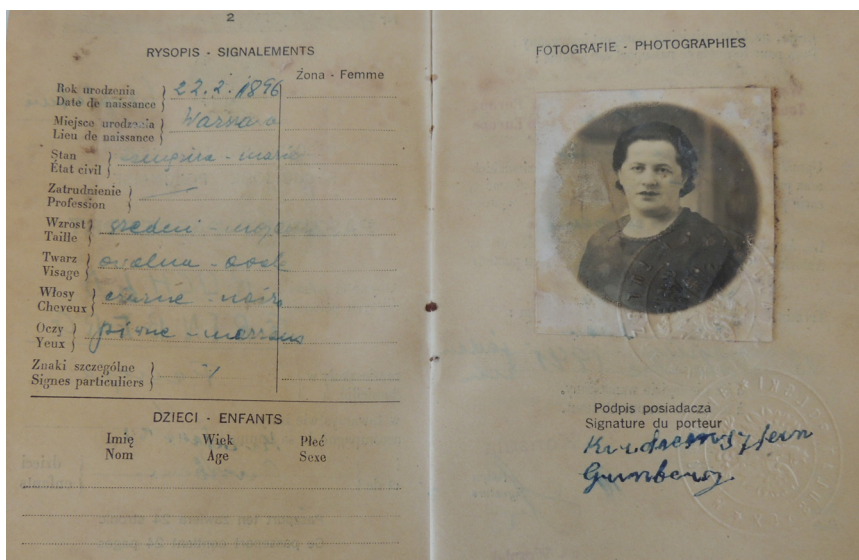 2
RYSOPIS - SIGNALEMENTS
Żona - Femme
Rok urodzenia
Date de naissance
22.2.1896
Miejsce urodzenia
Lieu de naissance
Warszawa
Stan
État civil
Zatrudnienie
Profession
Wzrost
Taille
średni
Twarz
Visage
owalna - oval
Włosy
Cheveux
czarne - noirs
Oczy
Yeux
piwne - marrons
Znaki szczególne
Signes particuliers
DZIECI - ENFANTS
Imię Wiek Płeć
Nom Age Sexe
FOTOGRAFIE - PHOTOGRAPHIES
Podpis posiadacza
Signature du porteur